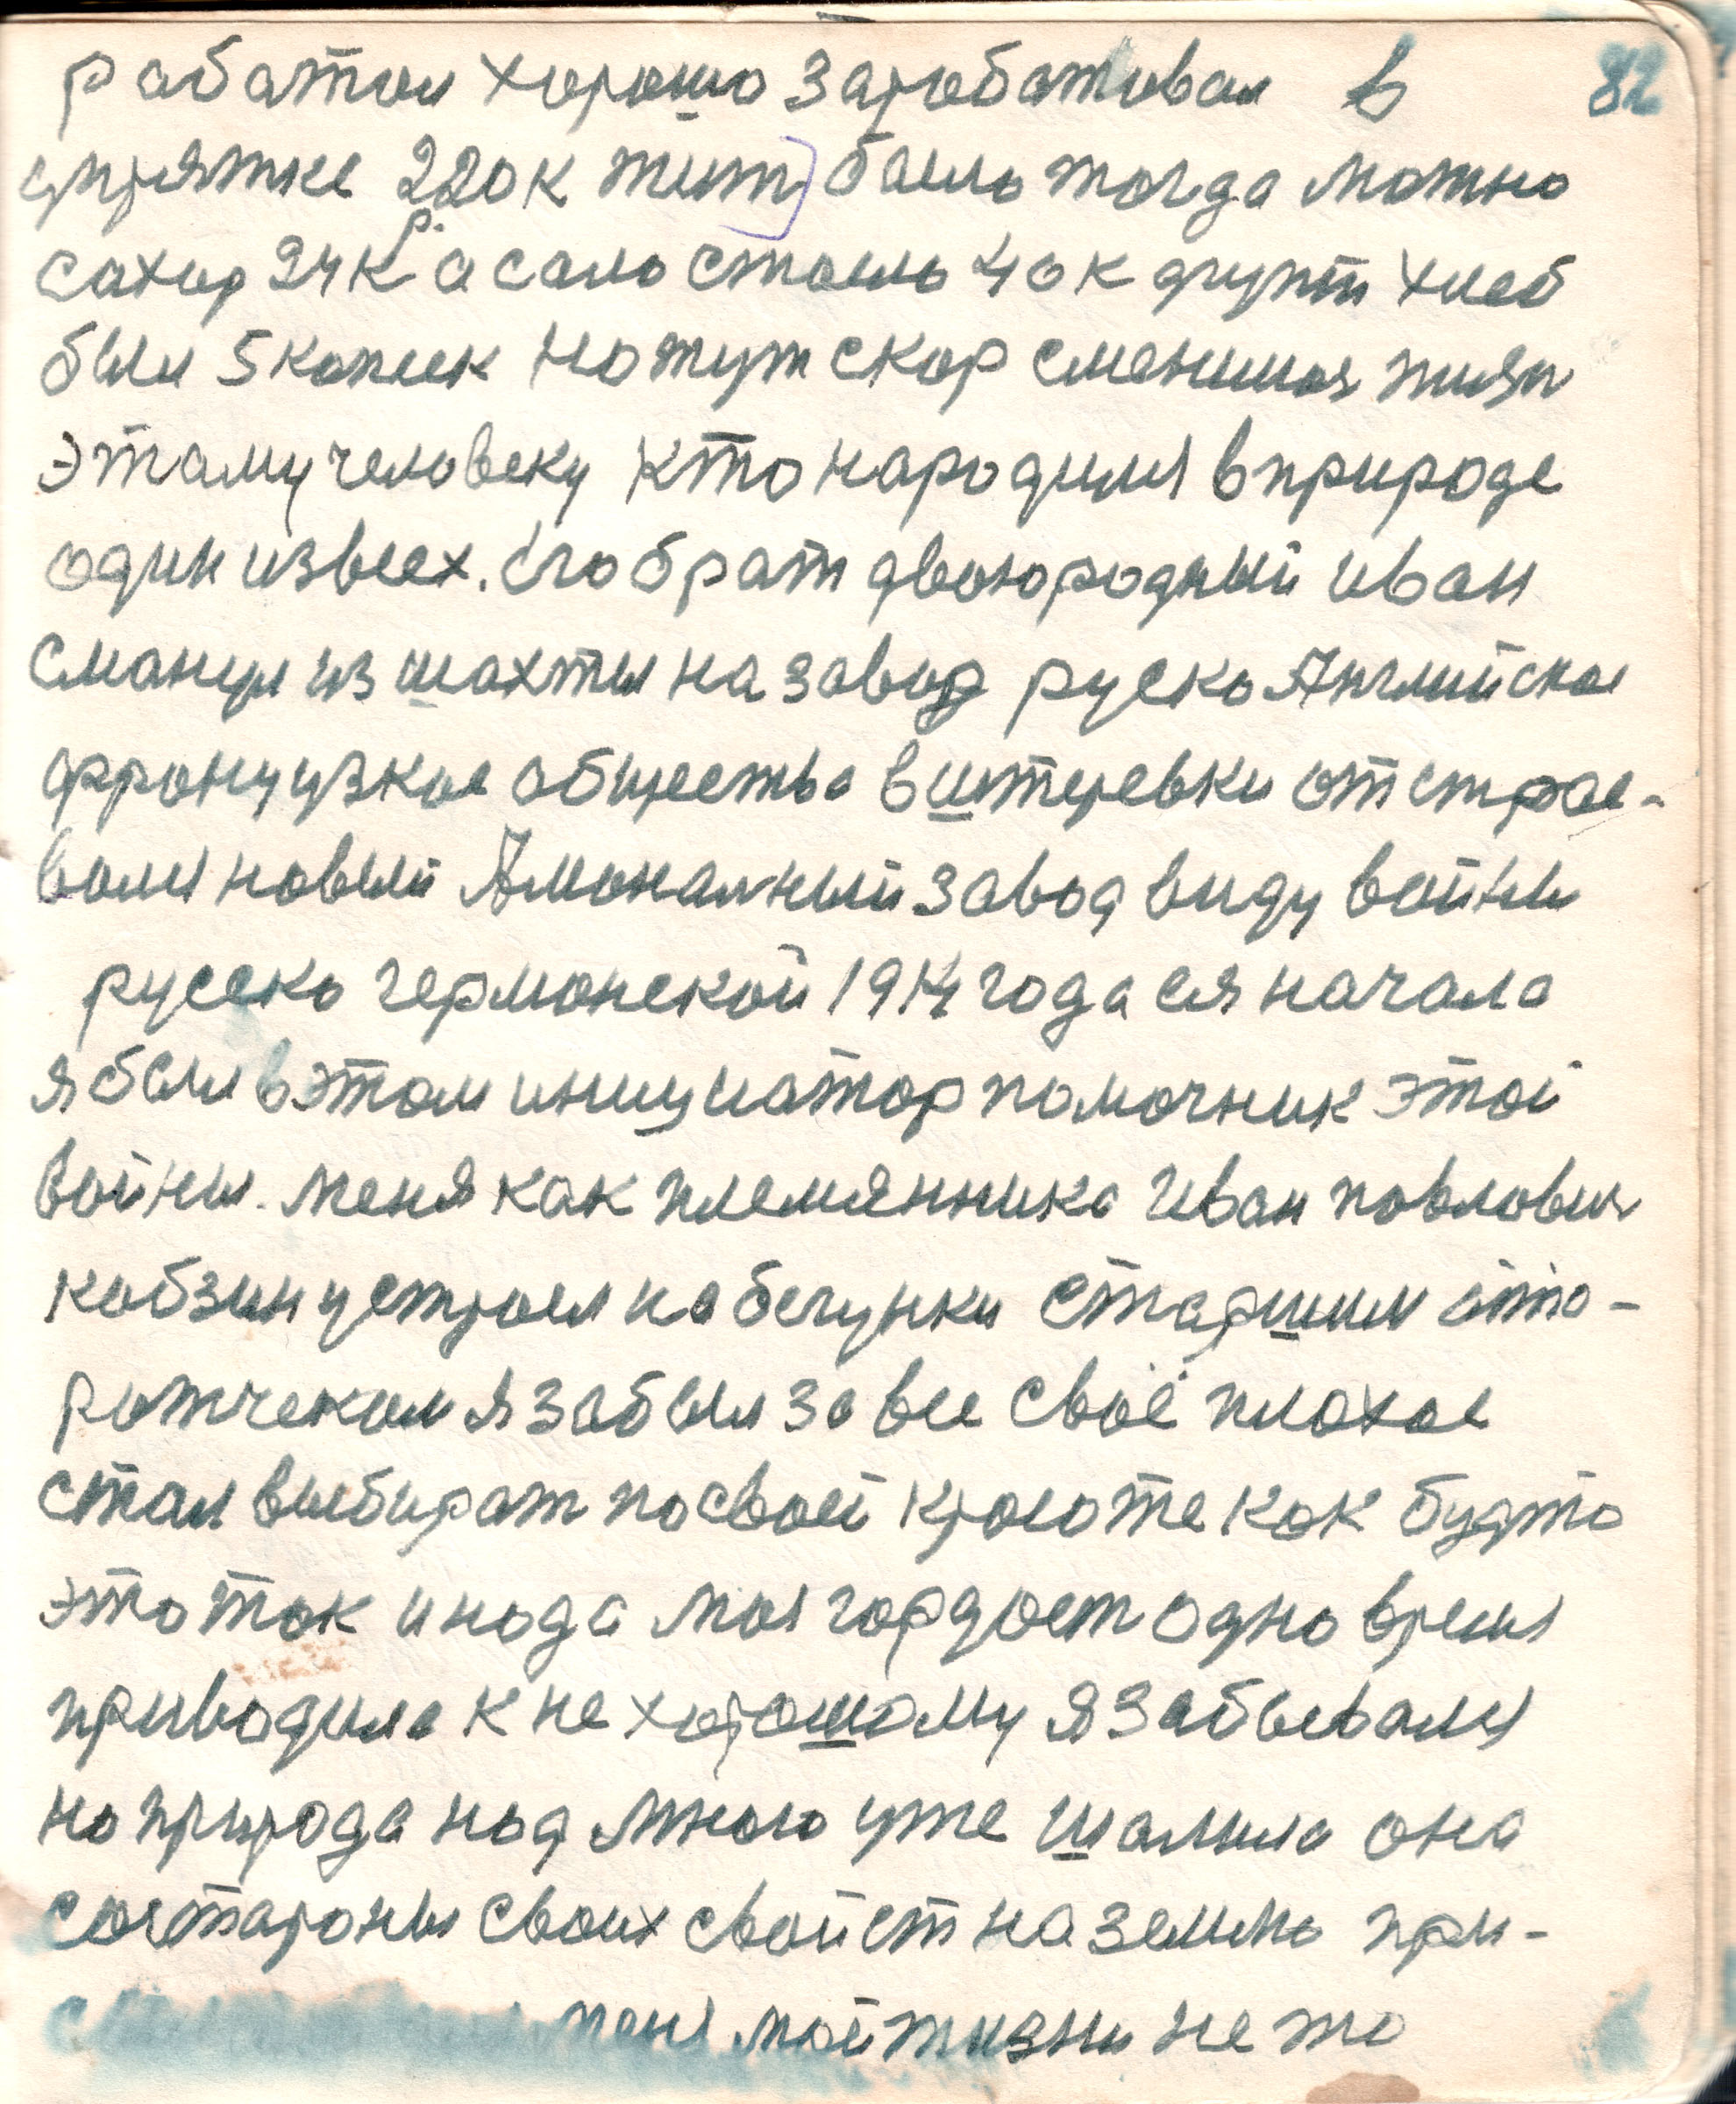 работал хорошо заработовал в 82
упряжке 220к жит] было тогда можно
сахар 24к р. а сало стоило 40к фунт хлеб
был 5 копеек но тут скор сменился жизн
этаму человеку кто народился в природе
один из всех. Его брат двоюродный иван
сманул из шахты на завод руско Английское
французкое общество в штеревки от строе-
вался новый Амональный завод виду войны
русско германской 1914 года ся начала
я был в этом инициатор помочник этой
войны. меня как племянника Иван повлович
кобзин устроел на бегунки старшим ото-
я забыл за все своё плохое
стал выбират по своей кросоте как будто
это так и нода моя гордост одно время
приводила к не хорошому я забывался
но природа над мною уже шалила она
со староны своих свойст на землю при-
меня моей жизни не то